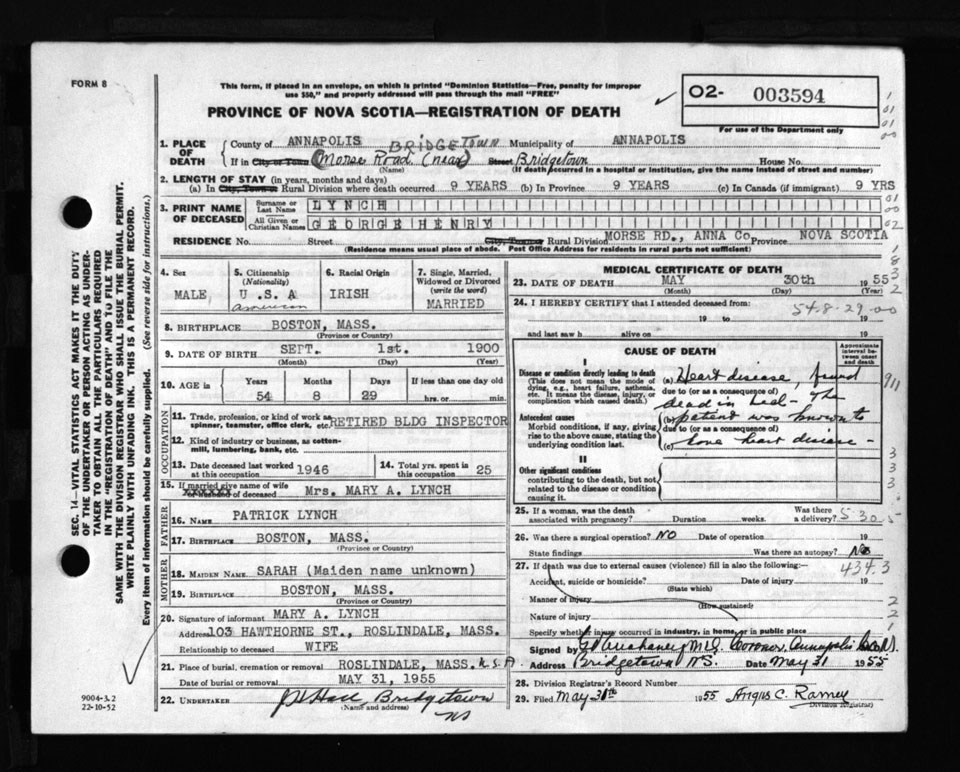 FORM 8
This form, if placed in an envelope, on which is printed "Dominion Statistics—Free, penalty for improper
use $50," and properly addressed will pass through the mail "FREE"
PROVINCE OF NOVA SCOTIA—REGISTRATION OF DEATH
O2- 003594
For use of the Department only
1. PLACE OF DEATH
County of ANNAPOLIS BRIDGETOWN Municipality of ANNAPOLIS
If in City or Town (Morse Road. (near) Street Bridgetown House No.
(Name) (If death occurred in a hospital or institution, give the name instead of street and number)
2. LENGTH OF STAY (in years, months and days)
(a) In City, Town or Rural Division where death occurred 9 YEARS (b) In Province 9 YEARS (c) In Canada (if immigrant) 9 YRS
3. PRINT NAME OF DECEASED
Surname or Last Name LYNCH
All Given or Christian Names GEORGE HENRY
RESIDENCE No. Street City, Town or Rural Division MORSE RD., ANNA Co. Province NOVA SCOTIA
(Residence means usual place of abode. Post Office Address for residents in rural parts not sufficient)
4. Sex MALE
5. Citizenship (Nationality) U.S.A American
6. Racial Origin IRISH
7. Single, Married, Widowed or Divorced (write the word) MARRIED
8. BIRTHPLACE BOSTON, MASS.
(Province or Country)
9. DATE OF BIRTH SEPT. 1st. 1900
(Month) (Day) (Year)
10. AGE in Years Months Days If less than one day old
54 8 29 hrs. or min.
OCCUPATION
11. Trade, profession, or kind of work as spinner, teamster, office clerk, etc. RETIRED BLDG INSPECTOR
12. Kind of industry or business, as cotton-mill, lumbering, bank, etc.
13. Date deceased last worked at this occupation 1946
14. Total yrs. spent in this occupation 25
15. If married give name of wife of deceased Mrs. MARY A. LYNCH
FATHER
16. NAME PATRICK LYNCH
17. BIRTHPLACE BOSTON, MASS.
(Province or Country)
MOTHER
18. MAIDEN NAME SARAH (Maiden name unknown)
19. BIRTHPLACE BOSTON, MASS.
(Province or Country)
20. Signature of informant MARY A. LYNCH
Address 103 HAWTHORNE ST., ROSLINDALE, MASS.
Relationship to deceased WIFE
21. Place of burial, cremation or removal ROSLINDALE, MASS. U.S.A.
Date of burial or removal MAY 31, 1955
22. UNDERTAKER Hall, Bridgetown
(Name and address) NS
MEDICAL CERTIFICATE OF DEATH
23. DATE OF DEATH MAY 30th 1955
(Month) (Day) (Year)
24. I HEREBY CERTIFY that I attended deceased from:
54-8-29-00
19 to 19
and last saw h alive on 19
CAUSE OF DEATH
Approximate interval between onset and death
I
Disease or condition directly leading to death
(This does not mean the mode of dying, e.g., heart failure, asthenia, etc. It means the disease, injury, or complication which caused death.)
(a) Heart disease, found
due to (or as a consequence of)
dead in bed - The
Antecedent causes
Morbid conditions, if any, giving rise to the above cause, stating the underlying condition last.
(b) patient was known to
due to (or as a consequence of)
(c) have heart disease -
II
Other significant conditions
contributing to the death, but not related to the disease or condition causing it.
25. If a woman, was the death associated with pregnancy? Duration weeks. Was there a delivery?
26. Was there a surgical operation? NO Date of operation 19
State findings Was there an autopsy? No
27. If death was due to external causes (violence) fill in also the following:—
434.3
Accident, suicide or homicide? Date of injury 19
(State which)
Manner of injury
(How sustained)
Nature of injury
Specify whether injury occurred in industry, in home, or in public place
Signed by M.D. Coroner, Annapolis
Address Bridgetown N.S. Date May 31 1955
28. Division Registrar's Record Number
29. Filed May 31th 1955 Angus C. Ramey
Division Registrar
SEC. 14—VITAL STATISTICS ACT MAKES IT THE DUTY
OF THE UNDERTAKER OR PERSON ACTING AS UNDER-
TAKER TO OBTAIN ALL THE PARTICULARS REQUIRED
IN THE "REGISTRATION OF DEATH" AND TO FILE THE
SAME WITH THE DIVISION REGISTRAR WHO SHALL ISSUE THE BURIAL PERMIT.
WRITE PLAINLY WITH UNFADING INK. THIS IS A PERMANENT RECORD.
Every item of information should be carefully supplied. (See reverse side for instructions.)
9004-3.2
22-10-52